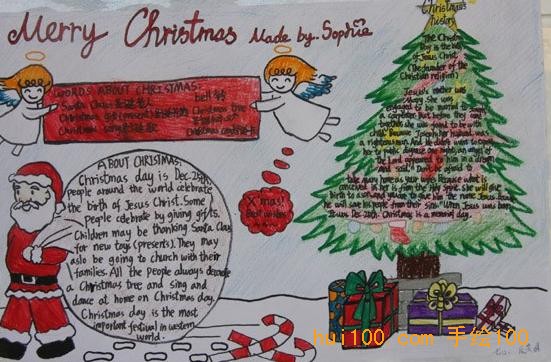 Merry Christmas Made by. Sophie
Christmas
history
The Christmas
Day is the birth
of Jesus Christ.
(the founder of the
Christian religion)
WORDS ABOUT CHRISTMAS:
Santa Claus 圣诞老人 bell 铃
Christmas (present) Christmas tree
Christmas song Christmas card
ABOUT CHRISTMAS:
Christmas day is Dec.25th,
people around the world celebrate
the birth of Jesus Christ. Some
people celebrate by giving gifts.
Children may be thanking Santa Claus
for new toys (presents). They may
aslo be going to church with their
families. All the people always decorate
a Christmas tree and sing and
dance at home on Christmas day.
Christmas day is the most
important festival in western
world.
X'mas!
Best wishes
Jesus's mother was
Mary. She was
engaged to be married to Joseph,
a carpenter. But before they
together. She found to be
child. Because Joseph, her husband, was
a righteous man. And he didn't want her
public disgrace. an angel of
the Lord appeared to him in a dream
and said," Don't be afraid to
take Mary home as your wife. Because what is
conceived in her is from the Holy Spirit. She will give
birth to a son and you are to give him the name Jesus, because
he will save his people from their sins." When Jesus was born
Dec 25th. Christmas is a moment day.
hui100.com 手绘100